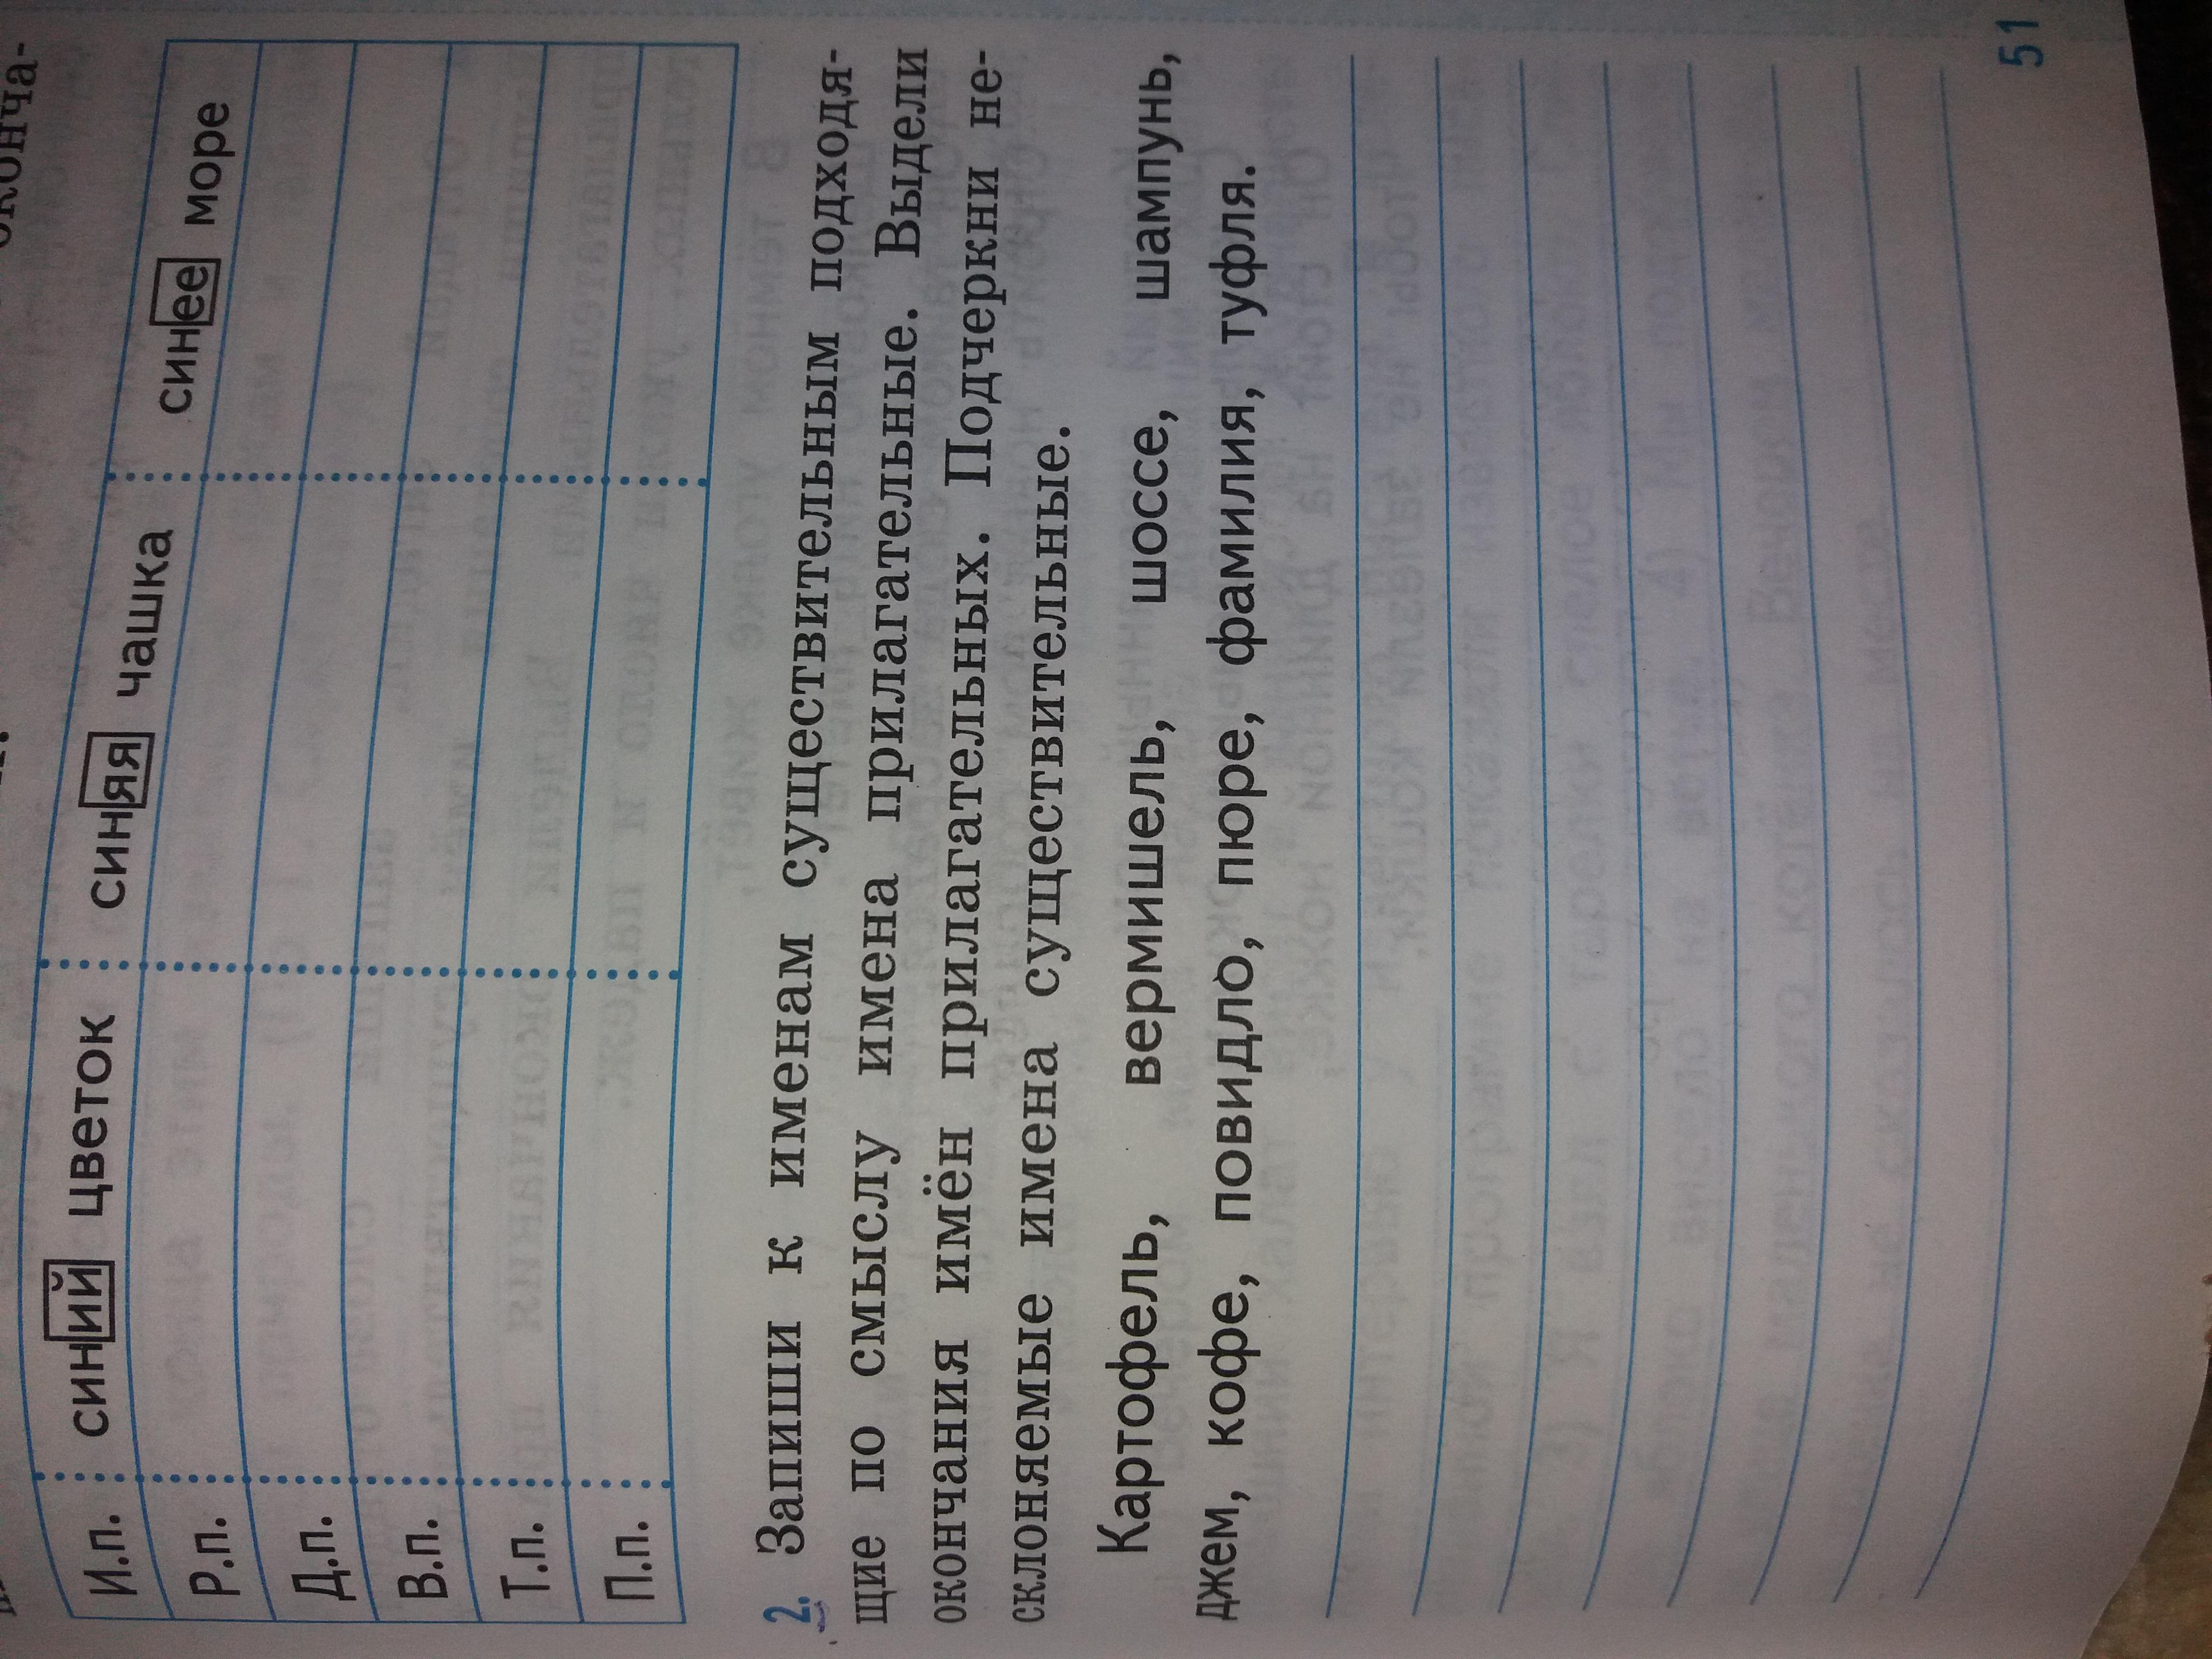 оконча-
И.п. синий цветок синяя чашка синее море
Р.п.
Д.п.
В.п.
Т.п.
П.п.
2. Запиши к именам существительным подходя-
щие по смыслу имена прилагательные. Выдели
окончания имён прилагательных. Подчеркни не-
склоняемые имена существительные.
Картофель, вермишель, шоссе, шампунь,
джем, кофе, повидло, пюре, фамилия, туфля.
51